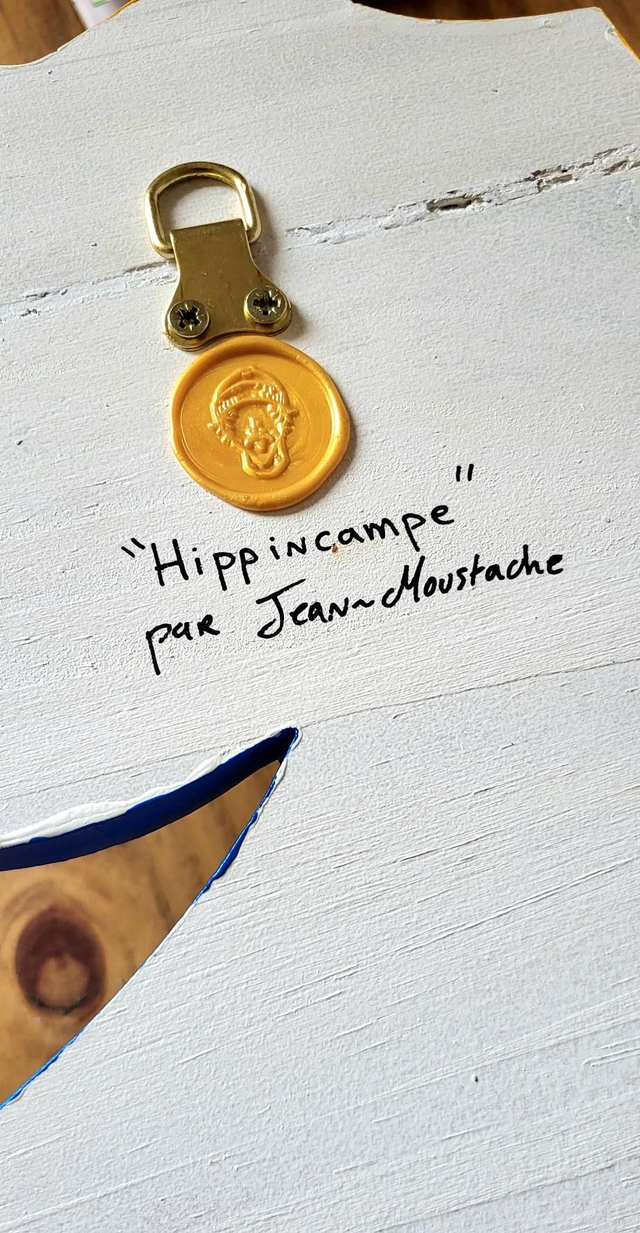 "Hippincampe"
par Jean~Moustache